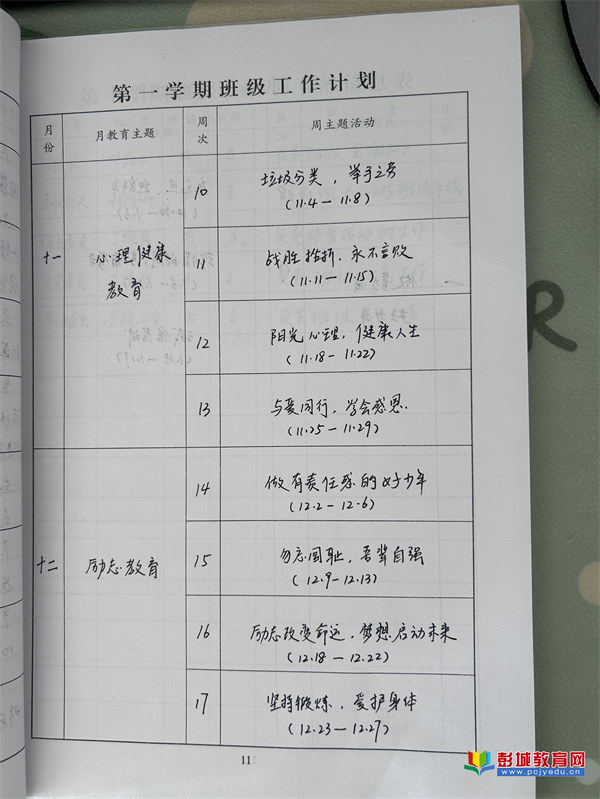 第一学期班级工作计划
月份 月教育主题 周次 周主题活动
10 垃圾分类，举手之劳
(11.4 — 11.8)
十一 心理健康教育 11 战胜挫折，永不言败
(11.11 — 11.15)
12 阳光心理，健康人生
(11.18 — 11.22)
13 与爱同行，学会感恩
(11.25 — 11.29)
14 做有责任感的好少年
(12.2 — 12.6)
十二 励志教育 15 勿忘国耻，吾辈自强
(12.9 — 12.13)
16 励志改变命运，梦想启动未来
(12.18 — 12.22)
17 坚持锻炼，爱护身体
(12.23 — 12.27)
11
彭城教育网
www.pcjyedu.cn